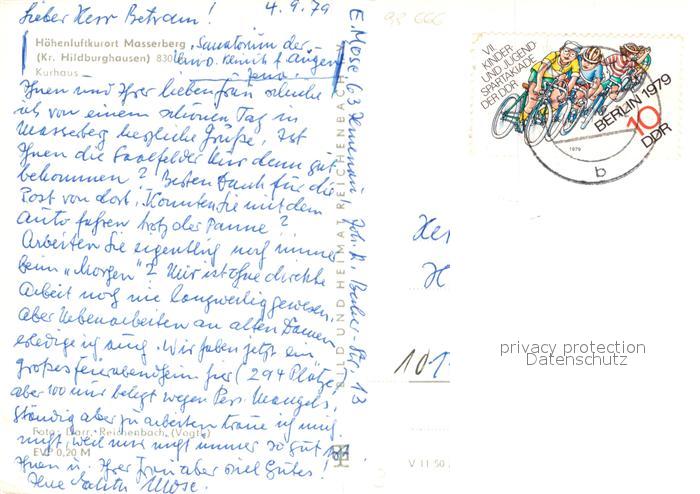 Lieber Herr Betram! 4.9.79
Höhenluftkurort Masserberg „Sanatorium der
(Kr. Hildburghausen) 830 Augen
Kurhaus Jena.
Ihnen und Ihrer lieben Frau schicke
ich von einem schönen Tag in
Masserberg herzliche Grüße, Ist
Ihnen die Saalfelder Kur denn gut
bekommen? Besten Dank für die
Post von dort. Konnten Sie mit dem
Auto fahren trotz der Panne?
Arbeiten Sie eigentlich noch immer
beim „Morgen"? Mir ist ohne direkte
Arbeit noch nie langweilig gewesen.
Aber Nebenarbeiten an alten Damen
erledige ich auch. Wir haben jetzt ein
großes Feierabendheim hier (294 Plätze
aber 100 nur belegt wegen Pers. Mangels,
ständig aber zu arbeiten traue ich mich
nicht, weil mir nicht immer so gut ist
Foto: Darr, Reichenbach (Vogtl)
EVP 0,20 M
Ihnen u. Ihrer Frau aber viel Gutes!
Ihre Edith Mose.
E. Mose 63 Ilmenau, Joh. R. Becher-Str. 13
BILD UND HEIMAT REICHENBACH
98 666
VII.
KINDER-
UND JUGEND-
SPARTAKIADE
DER DDR
BERLIN 1979
10
DDR
1979
b
Her
H
101
V 11 50
privacy protection
Datenschutz